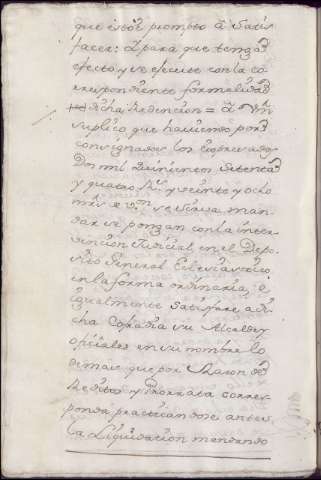 que estoy prompto à Satis
facer: Y para que tenga
efecto y se efectue con la co
rrespondiente formalidad
dicha Redencion = à Vm
suplico que haviendo por
consignados los expresados
dos mil Quinientos Setenta
y quatro Rs. y veinte y ocho
mrs de vn se sirva man
dar se pongan con la inter
vencion Judicial en el Depo
sito General Eclesiastico,
en la forma ordinaria, è
igualmente satisfare a di
cha Cofradia su Alcalde y
oficiales en su nombre lo
demas que por Razon de
Redito y Prorrata corres
ponda practicandose antes
la Liquidacion mandando